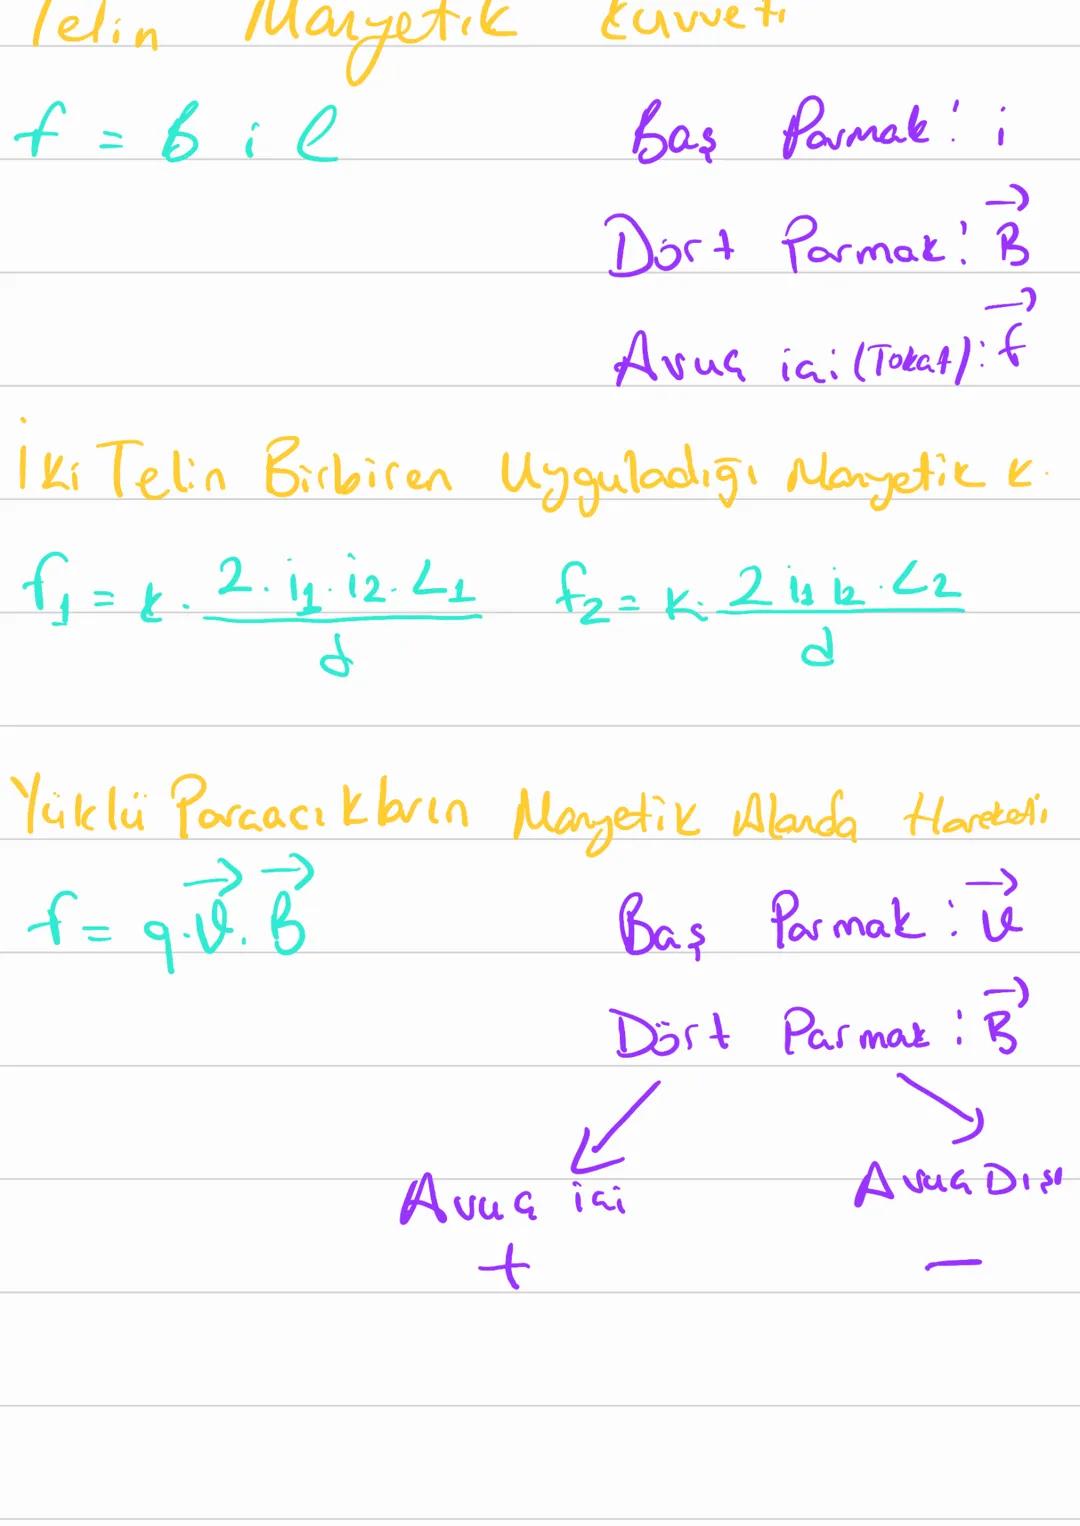 Telin Manyetik Kuvveti
f = B i l
Baş Parmak: i
Dört Parmak: B
Avuç içi (Tokat): f
İki Telin Birbiren Uyguladığı Manyetik K.
f1 = k. 2. i1. i2. L1 / d f2 = k. 2 i1 i2. L2 / d
Yüklü Parçacıkların Manyetik Alanda Hareketi
f = q. v. B
Baş Parmak: v
Dört Parmak: B
Avuç içi Avuç Dışı
+ −